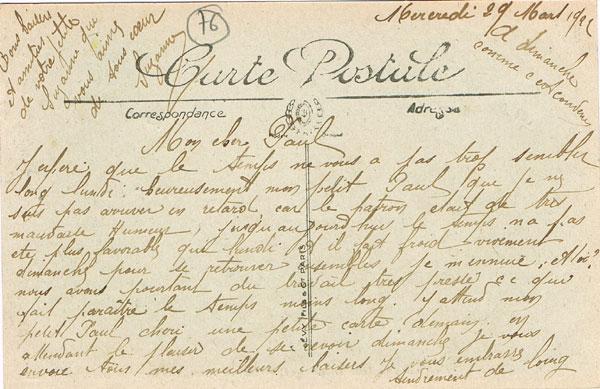 Bons baisers
et amitiés
de votre petite
Suzanne qui
vous aime
de tout coeur
Suzanne
76
Mercredi 29 Mars
A dimanche
comme c'est convenu
Carte Postale
Correspondance
Adresse
Mon cher Paul
J'espère que le temps ne vous a pas trop sembler
long lundi. heureusement mon petit Paul que je ne
suis pas arriver en retard, car le patron était de très
mauvaise humeur, jusqu'aujourd'hui le temps n'a pas
ete plus favorable que lundi il fait froid vivement
dimanche pour se retrouver ensembles je m'ennuie, et toi?
nous avons pourtant du travail très pressé ce qui
fait paraître le temps moins long. J'attend mon
petit Paul chéri une petite carte demain, en
attendant le plaisir de se revoir dimanche je vous
envoie tous mes meilleurs baisers Je vous embrasse
tendrement de loing
LEVY FILS & Cie PARIS